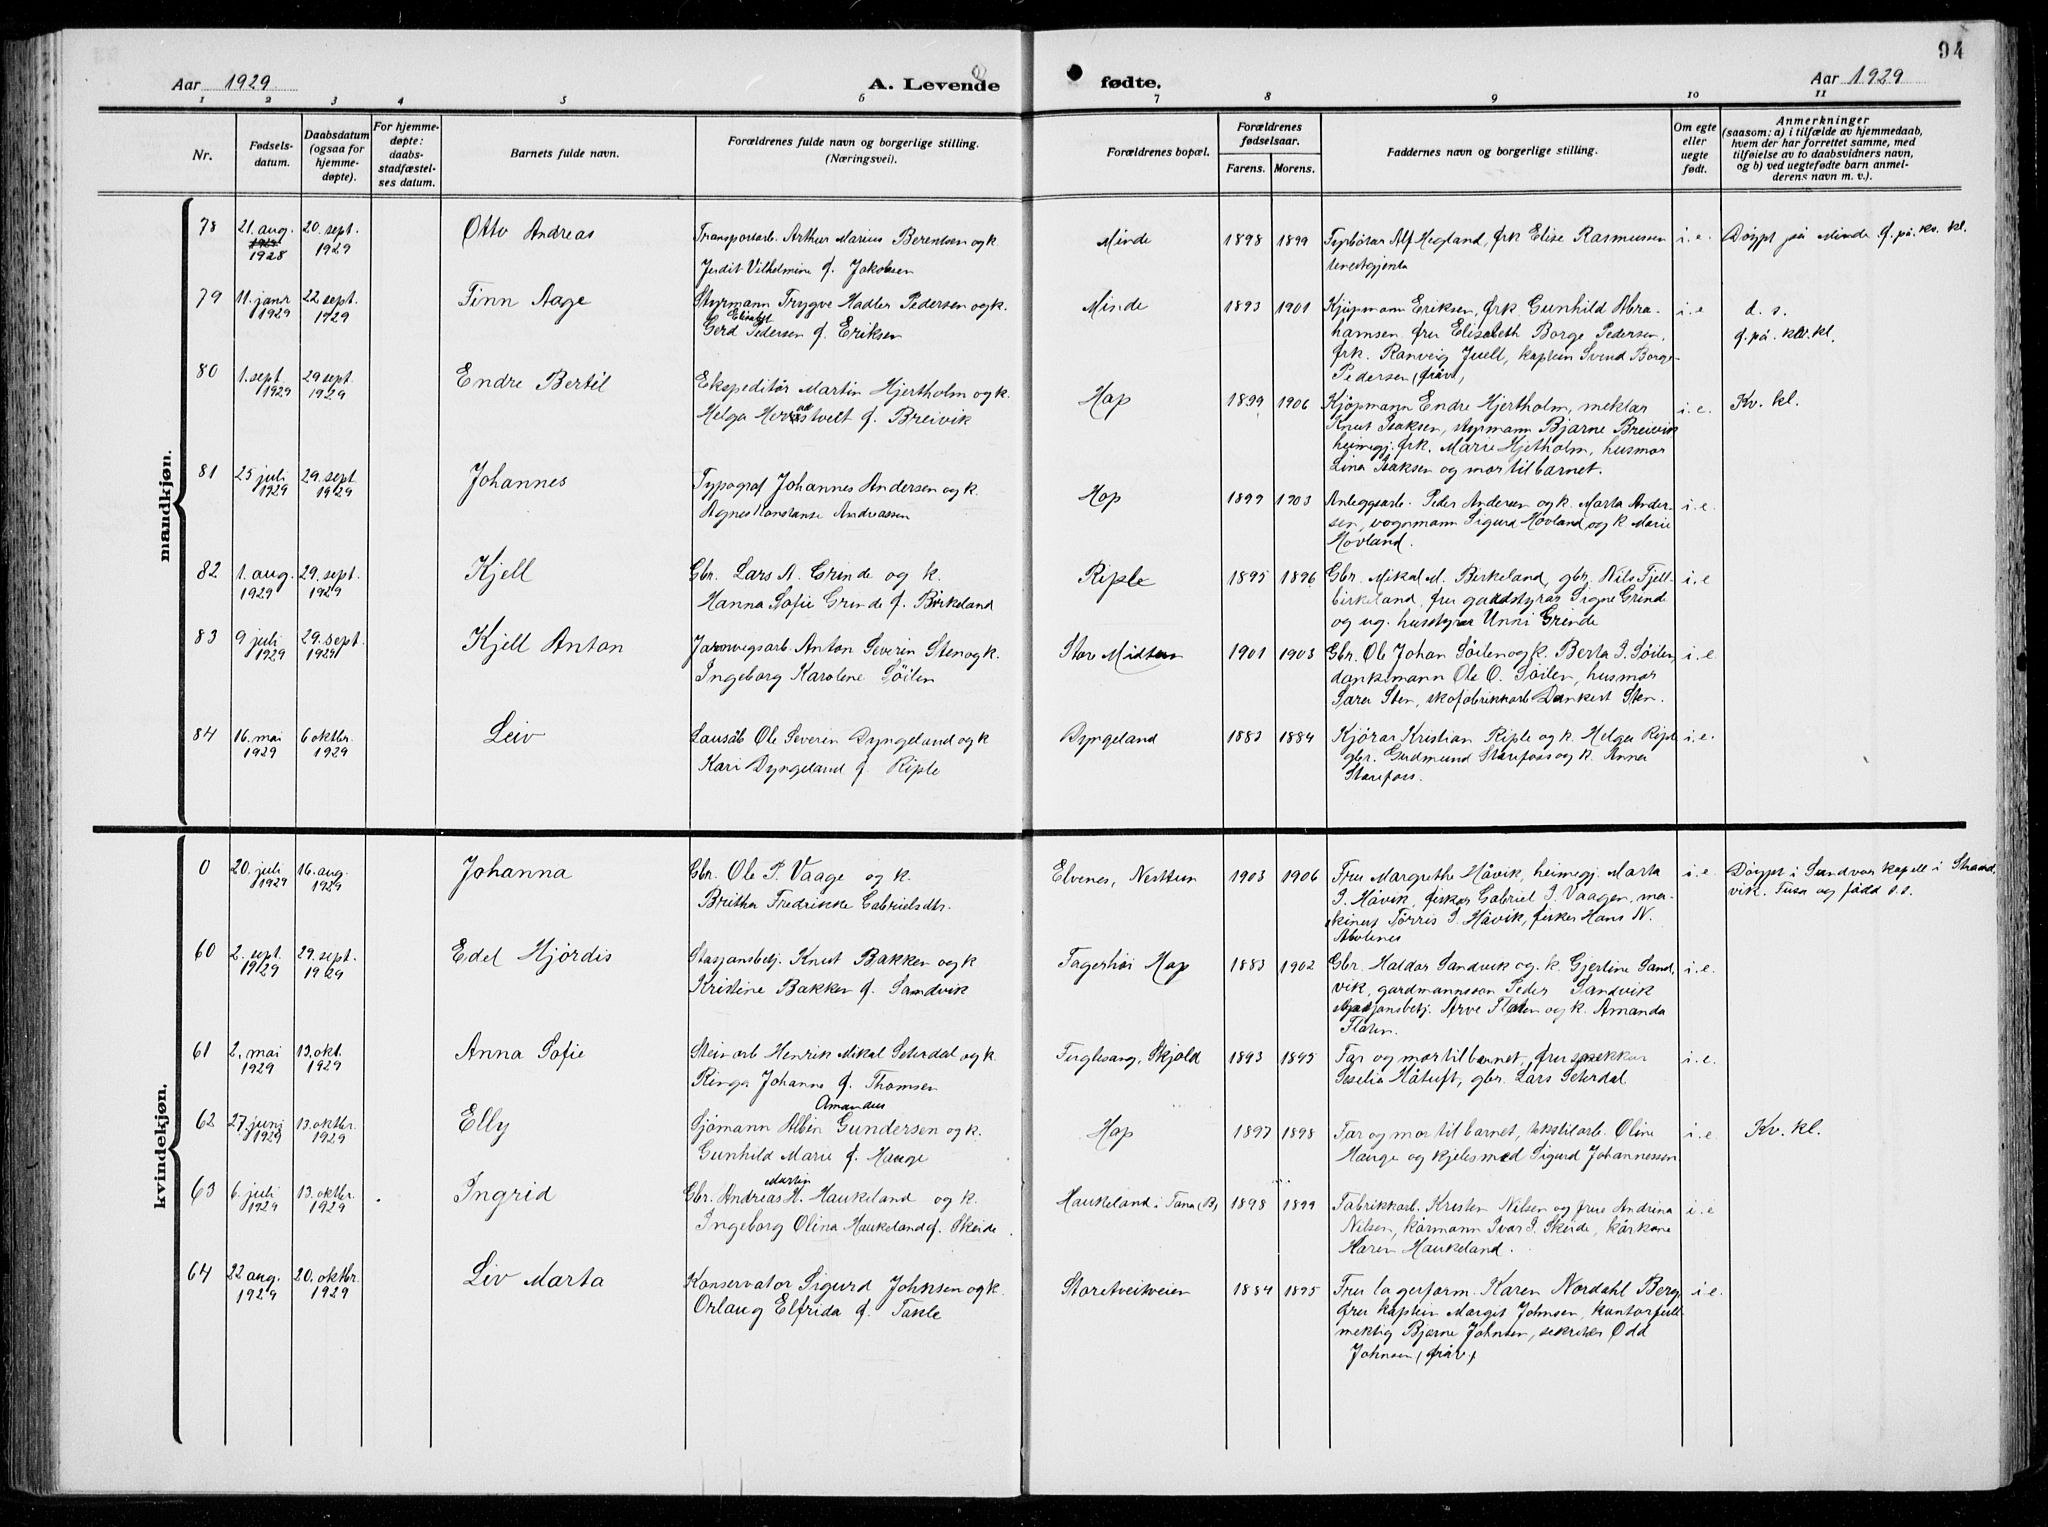 94
Aar 1929
A. Levende
fødte.
Aar 1929
1 2 3 4 5 6 7 8 9 10 11
Nr.
Fødsels-
datum.
Daabsdatum
(ogsaa for
hjemme-
døpte).
For hjemme-
døpte:
daabs-
stadfæstel-
ses datum.
Barnets fulde navn.
Forældrenes fulde navn og borgerlige stilling.
(Næringsvei).
Forældrenes bopæl.
Forældrenes
fødselsaar.
Farens. Morens.
Faddernes navn og borgerlige stilling.
Om egte
eller
uegte
født.
Anmerkninger
(saasom: a) i tilfælde av hjemmedaab,
hvem der har forrettet samme, med
tilføielse av to daabsvidners navn,
og b) ved uegtefødte barn anmel-
derens navn m. v.).
mandkjøn.
78 21. aug. 1928 20. sept. 1929 Otto Andreas
Transportarb. Arthur Marius Berentsen og k.
Jerdit Vilhelmine f. Jakobsen
Minde 1898 1899
Typbøtar Alf Hegland, frk Elise Rasmussen
tenestgjenta
i. e. Døypt på Minde f. på kv. kl.
79 11. janr 1929 22. sept. 1929 Finn Aage
Styrmann Trygve Hadler Pedersen og k.
Elisabet
Gerd Pedersen f. Eriksen
Minde 1893 1901
Kjøpmann Eriksen, frk Gunhild Abra-
hamsen, fru Elisabeth Borge Pedersen,
frk. Ranveig Juell, kaptein Svend Borge-
Pedersen (fråv.)
i. e d. s.
f. på kv. kl.
80 1. sept. 1929 29 sept. 1929 Endre Bertil
Ekspeditør Martin Hjertholm og k.
Helga f. Breivik
Hop 1899 1906
Kjøpmann Endre Hjertholm, meklar
Knut Isaksen, styrmann Bjarne Breivik
heimegj. frk. Marie Hjetholm, husmor
Lina Isaksen og mor til barnet.
i. e. Kv. kl.
81 25 juli 1929 29. sept. 1929 Johannes
Typograf Johannes Andersen og k.
Agnes Konstanse Andreassen
Hop 1899 1903
Anleggsarb. Peder Andersen og k. Marta Ander-
sen, vognmann Sigurd Hovland og k Marie
Hovland.
i. e.
82 1. aug. 1929 29. sept. 1929 Kjell
Gbr. Lars A. Grinde og k.
Hanna Sofie Grinde f. Birkeland
Riple 1895 1896
Gbr. Mikal M. Birkeland, gbr. Nils Fjell-
birkeland, fru gardstyrar Signe Grind
og ug. husstyrar Unni Grinde
i. e
83 9 juli 1929 29. sept. 1929 Kjell Anton
Jarnvegsarb. Anton Severin Sten og k.
Ingeborg Karolene Søilen
Store Midtun 1901 1903
Gbr. Ole Johan Søilen og k. Berta I. Søilen,
danksmann Ole O. Søilen, husmor
Sara Sten, skofabrikkarb Dankert Sten.
i. e.
84 16. mai 1929 6 oktbr. 1929 Leiv
Lausab Ole Severin Dyngeland og k
Kari Dyngeland f. Riple
Dyngeland 1883 1884
Kjørar Kristian Riple og k. Helga Riple
gbr. Gudmund Starefoss og k. Anna
Starefoss.
i. e.
kvindekjøn.
0 20. juli 1929 16. aug. 1929 Johanna
Gbr. Ole P. Vaage og k.
Britha Fredrikke Gabrielsdtr.
Elvenes, Nesttun 1903 1906
Fru Margrethe Håvik, heimegj. Marta
I. Håvik, fiskar Gabriel I. Vaagen, ma-
skinist Torris I. Håvik, fisker Hans N.
i. e. Døypt i Sundvor kapell i Strand
vik. Fusa og fødd s.s.
60 2. sept. 1929 29. sept. 1929 Edel Hjørdis
Stasjonsbetj. Knut Bakken og k
Kristine Bakken f. Sandvik
Fagerhøi Hop 1883 1902
Gbr. Haldor Sandvik og k. Gjertine Sand,
vik, gardmannsson Peder Sandvik
stasjonsbetj. Arve Flaten og k. Amanda
Flaten.
i. e.
61 2. mai 1929 13. okt. 1929 Anna Sofie
Steinarb Henrik Mikal Seterdal og k.
Ringa Johanne f. Thomsen
Fuglesang, Skjold 1893 1895
Far og mor til barnet, fru snekkar
Seselia Håtuft, gbr. Lars Seterdal
i. e.
62 27. juni 1929 13. oktbr. 1929 Elly
Amandus
Sjømann Albin Gundersen og k.
Gunhild Marie f. Hauge
Hop 1897 1898
Far og mor til barnet, tekstilarb. Oline
Hauge og kjelesmed Sigurd Johannessen
i. e. Kv. kl.
63 6. juli 1929 13. oktbr. 1929 Ingrid
Martin
Gbr. Andreas A. Haukeland og k.
Ingeborg Olina Haukeland f. Skeide.
Haukeland i Fana (B) 1898 1899
Fabrikkarb. Kristen Nilsen og frue Andrina
Nilsen, kårmann Ivar I. Skeide, kårkone
Karen Haukeland.
i. e
64 22 aug. 1929 20. oktbr. 1929 Liv Marta
Konservator Sigurd Johnsen og k.
Orlaug Elfrida f. Takle
Storetveitveien 1884 1895
Fru lagerform. Karen Nordahl Berg
fru kaptein Margit Johnsen, kontorfull-
mektig Bjarne Johnsen, sekretær Odd
Johnsen (fråv.)
i. e.